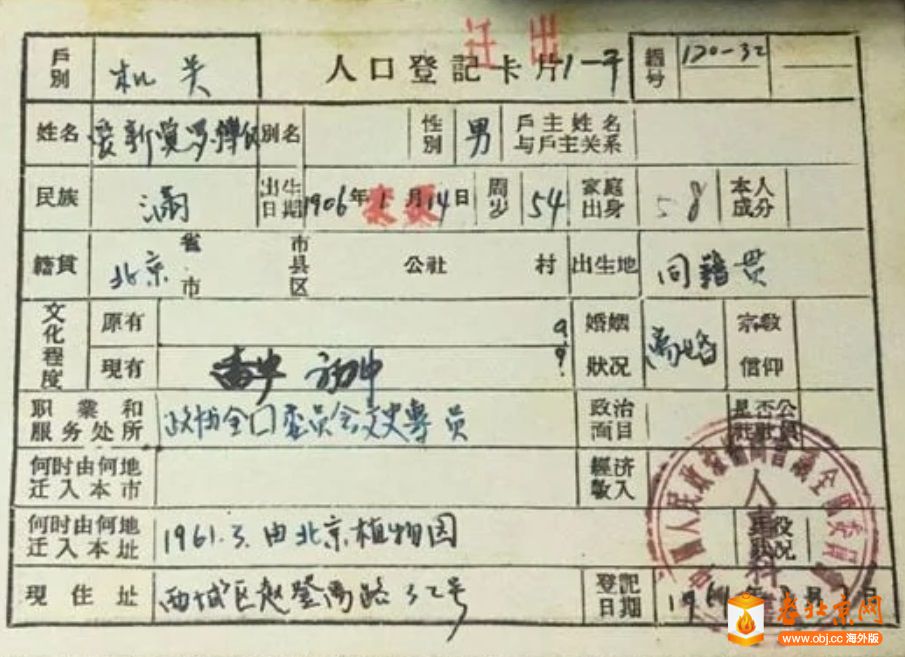 迁出
戶別 机关 人口登記卡片 1-平 編号 120-32
姓名 爱新覚罗·溥仪 别名 性别 男 戶主姓名与戶主关系
民族 满 出生日期 1906年1月14日 周岁 54 家庭出身 58 本人成分
籍貫 北京 省市 市县区 公社 村 出生地 同籍贯
文化程度 原有 婚姻狀况 离婚 宗教信仰
現有 初中
职業和服务处所 政协全囗委员会文史專员 政治面目 是否公社社員
何时由何地迁入本市 經济收入
何时由何地迁入本址 1961.3.由北京植物园
現住址 西城区赵登禹路32号 登記日期 1961年 月 日
人事科
老北京网
www.obj.cc 海外版